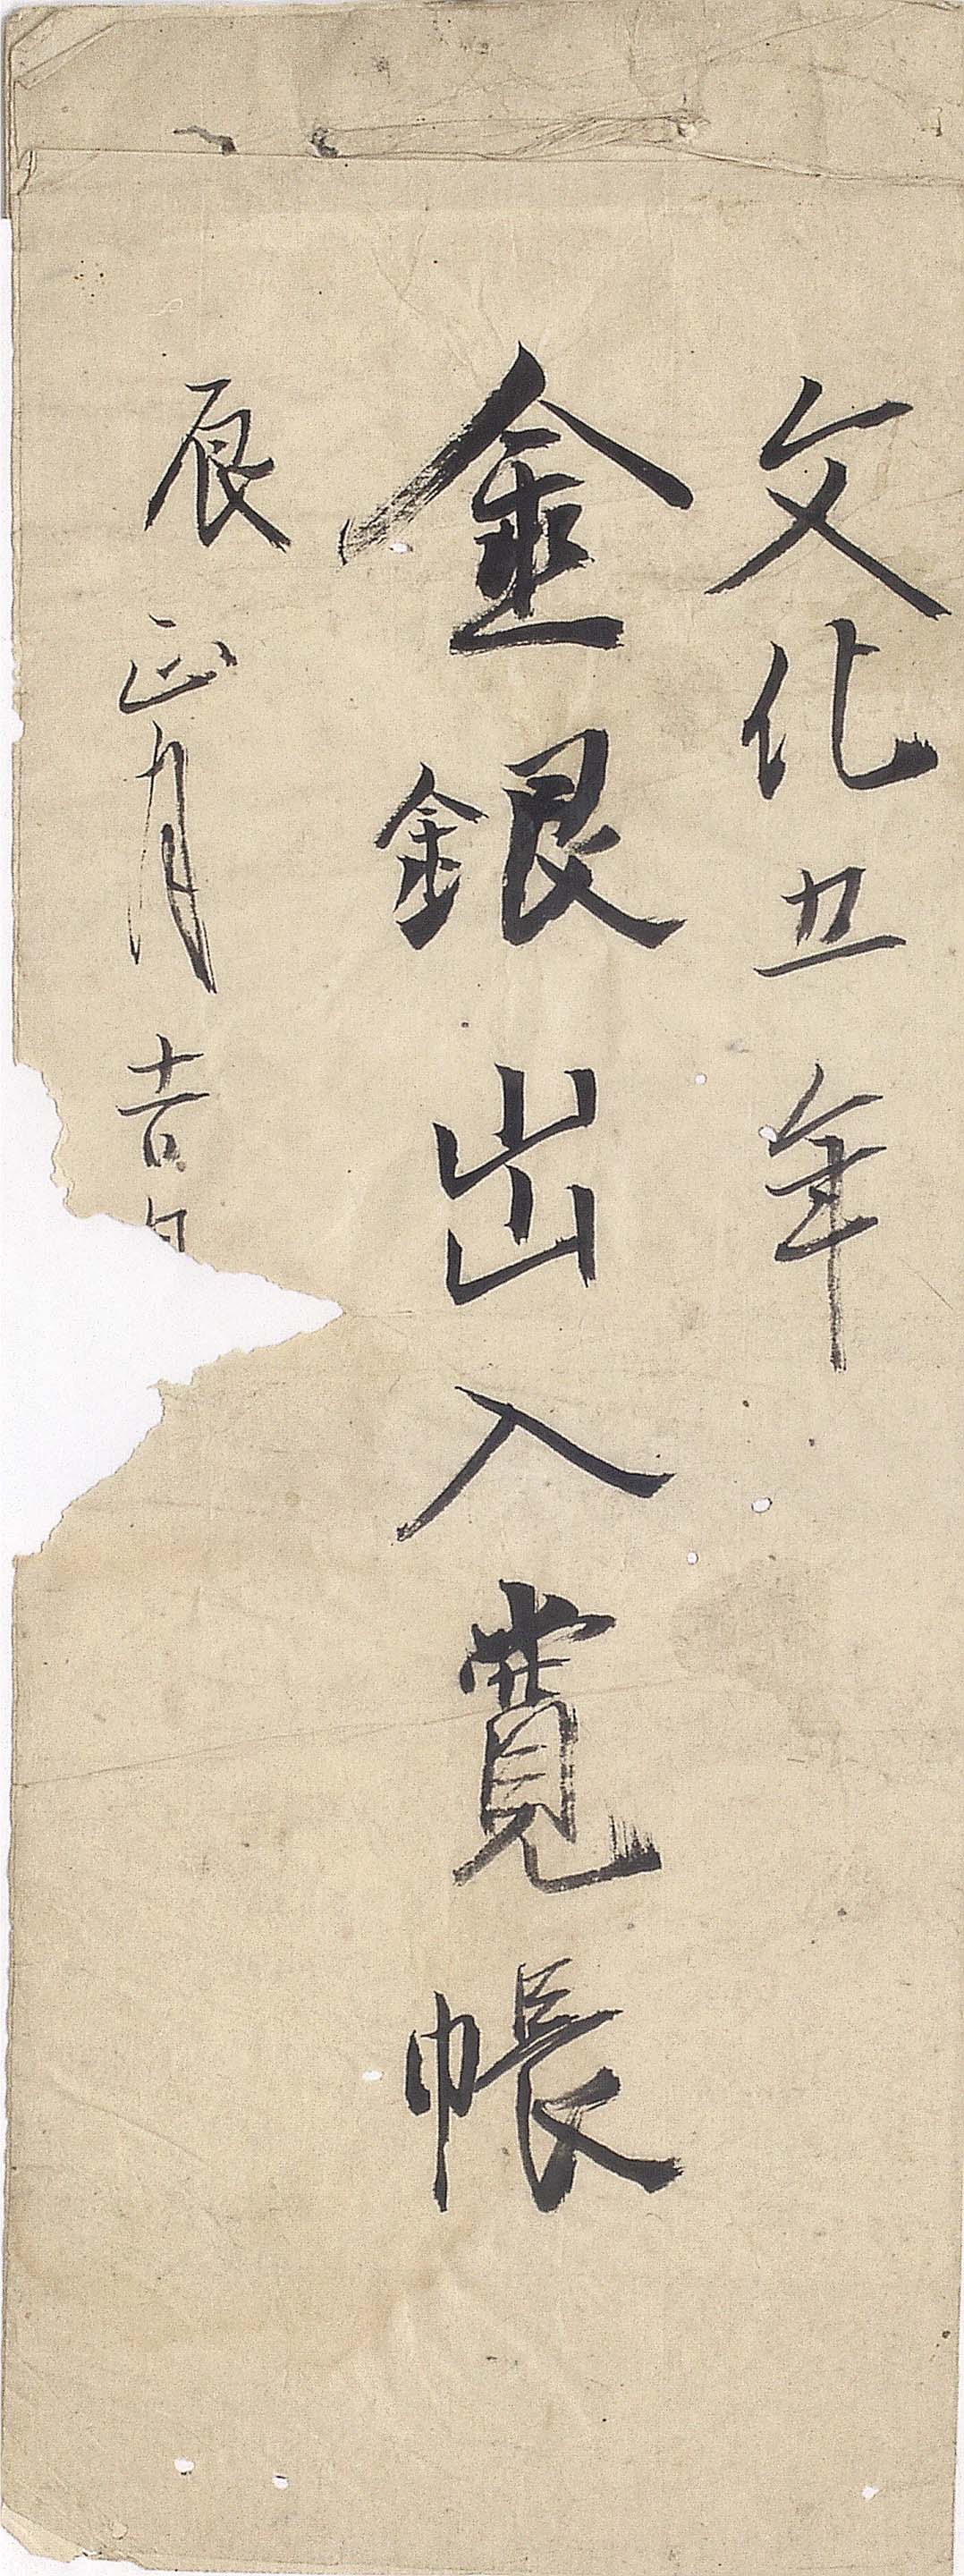 文化五年
金銀出入覚帳
辰正月吉日